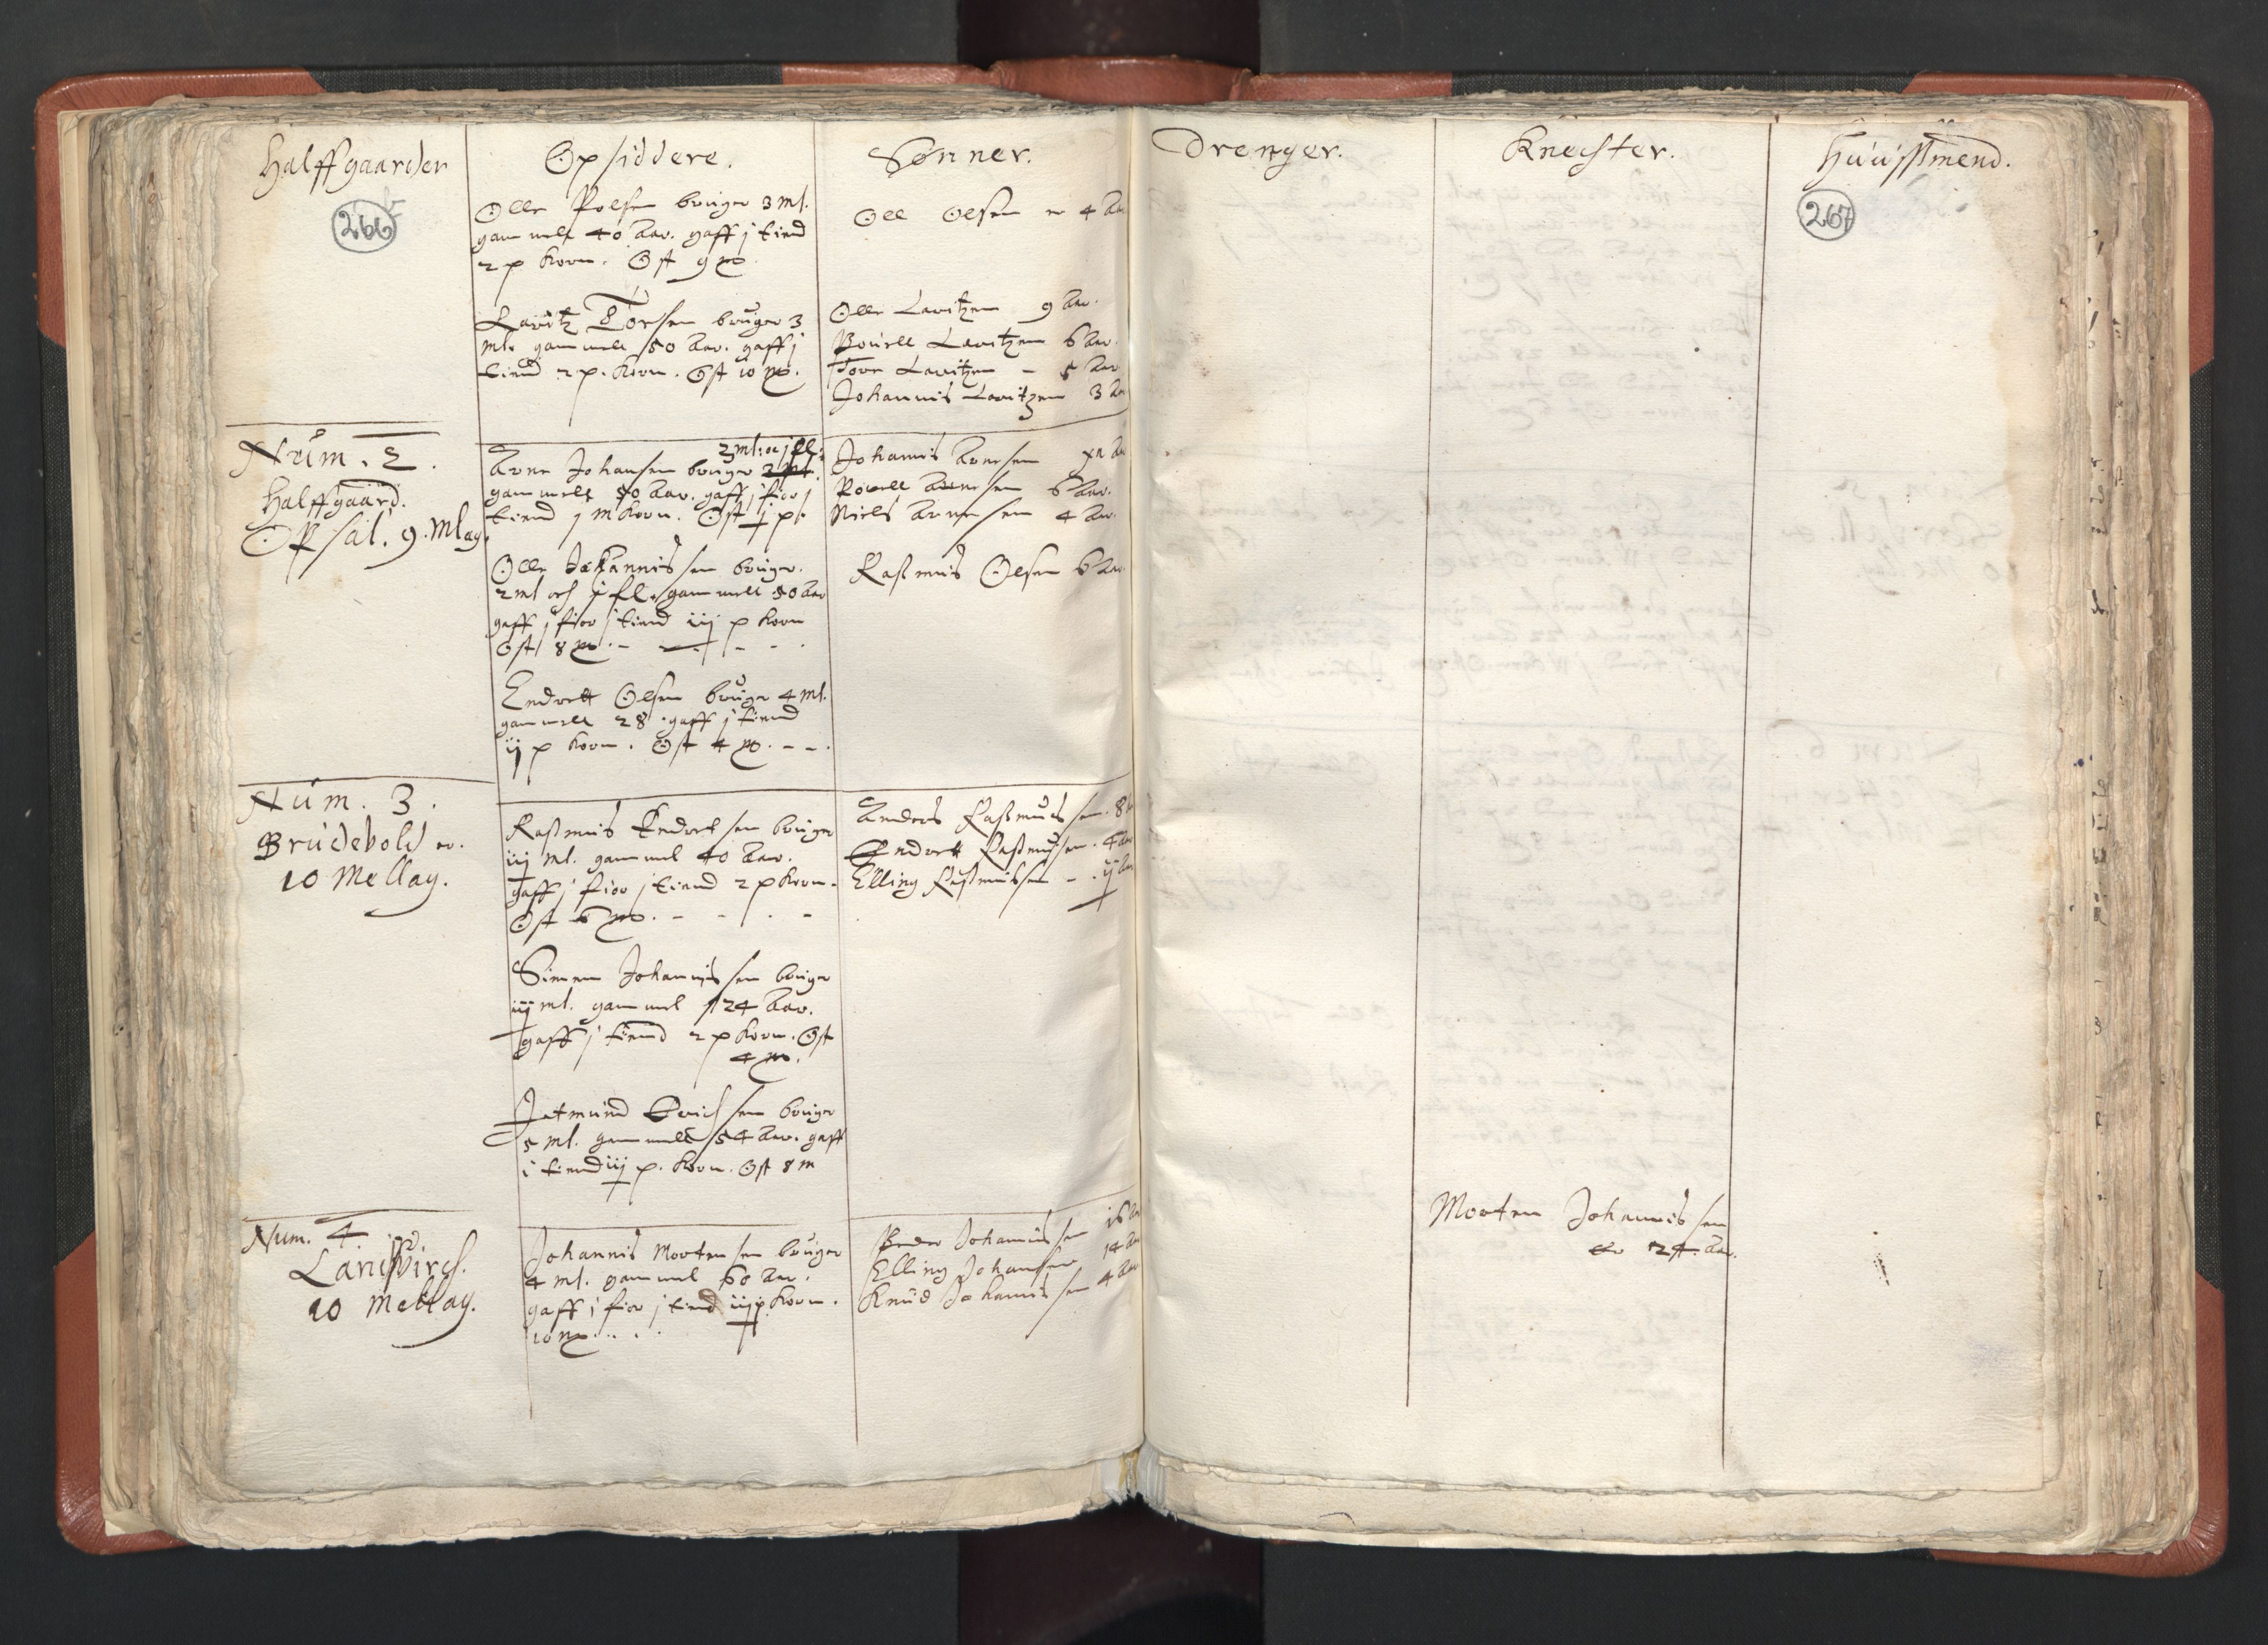 Halffgaarder
Opsiddere.
Sønner.
Drenger.
Knechter.
Huussmend.
266
267
Olle Polsen bruger 3 ml.
gammell 40 Aar. gaff j tiend
2 p korn. Ost 9 m
Oll Olsen er 4 Aar
Lauritz Torsen bruger 3
ml. gammell 50 Aar. gaff j
tiend 2 p. korn. Ost 10 m.
Olle Lauritzen 9 Aar.
Pouell Lauritzen 6 Aar.
Tore Lauritzen - 5 Aar
Johannis Lauritzen 3 Aar
Num. 2.
Halffgaard.
Opsal. 9. Mlag.
2 ml: oc j fl:
Arne Johansen bruger 2 ml.
gammell 50 Aar. gaff j fior j
tiend j m korn. Ost j p.
Johannis Arnesen Aar
Pouell Arnesen 6 Aar.
Niels Arnesen 4 Aar.
Olle Johannissen bruger.
2 ml och j fl. gammell 50 Aar
gaff j fior j tiend iij p korn
Ost 8 m. - - - -
Rasmus Olsen 6 Aar
Endrett Olsen bruger 4 ml.
gammell 28. gaff j tiend
ij p korn. Ost 4 m. - - .
Num. 3.
Brudebold er.
10 Mellag.
Rasmus Endretsen bruger
iij ml. gammel 40 Aar.
gaff j fior j tiend 2 p korn.
Ost 6 m. - - . -
Anders Rasmussen. 8
Endrett Rasmussen. 4 Aar
Elling Rasmussen - . ij Aar
Simen Johannissen bruger
iij ml. gammel 24 Aar.
gaff j tiend 2 p korn. Ost
4 m.
Jetmund Erichsen bruger
5 ml. gammell 54 Aar. gaff
i tiend iij p. korn. Ost 8 m
Num. 4
10 Mellag.
Johannis Mortensen bruger
4 ml. gammel 60 Aar.
gaff j fior j tiend iij p. korn.
10 m . . . .
Peder Johannissen 16 Aar
Elling Johansen 14 Aar
Knud Johannissen 4 Aar
Morten Johannissen
er 24 Aar.